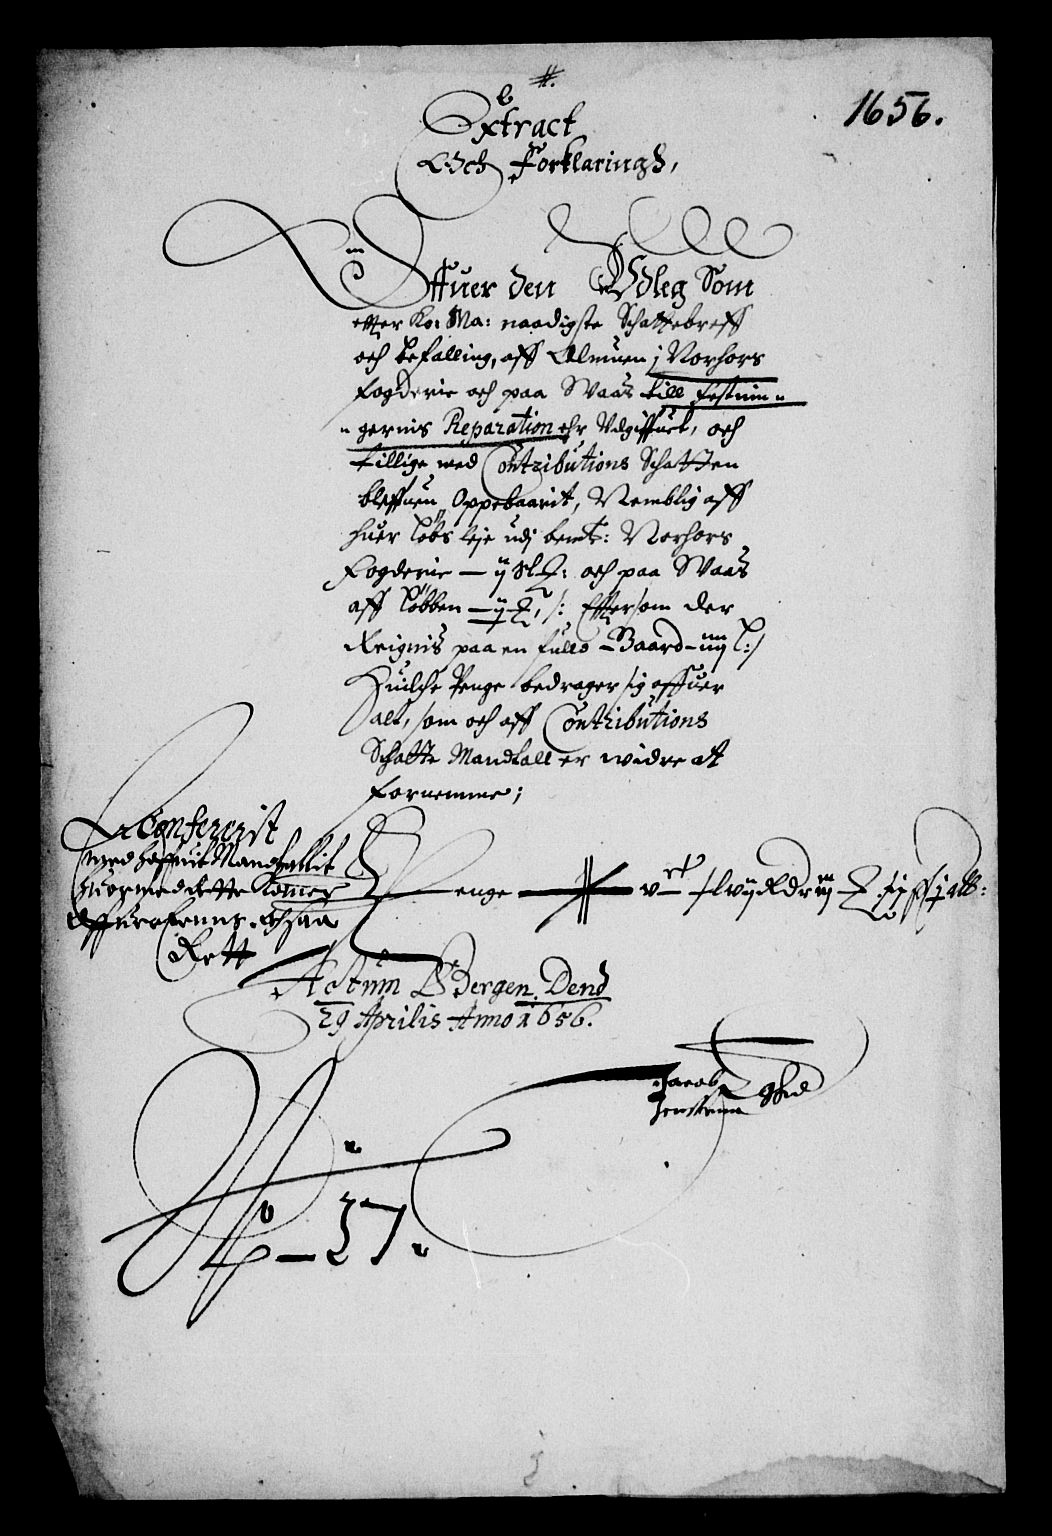 1656.
Extract
Och Forklaringh,
Offuer den Udleg Som
efter Ko: Ma: naadigste Schattebreff
och befalling, aff Almuen j Norhors
fogderie och paa Waas till festnin=
=gernis Reparation ehr Udgiffuet, och
tillige med Contributions Schatten
bleffuen Oppebaarit, Nemblig aff
huer løbs leje udj bemte: Norhors
fogderie — ij och paa Waas
aff Løbben — ij Eftersom der
Reignis paa en fulld Baard — iiij L:/
Huilche Penge bedrager sig offuer
alt, som och aff Contributions
Schatte Mandtall er widre at
fornemme;
Confererit
med hoffuit Mandtallit
huormed dette
och saa
Rett
Penge
Actum Bergen Dend
29 Aprilis Anno 1656.
Jacob
No — 27.